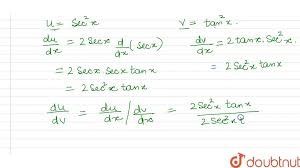 u = sec²x    v = tan²x.
du/dx = 2 secx d/dx (secx)    dv/dx = 2 tanx. sec²x.
= 2 secx secx tanx    = 2 sec²x tanx
= 2 sec²x tanx
du/dv = du/dx / dv/dx = 2 sec²x tanx / 2 sec²x
doubtnut